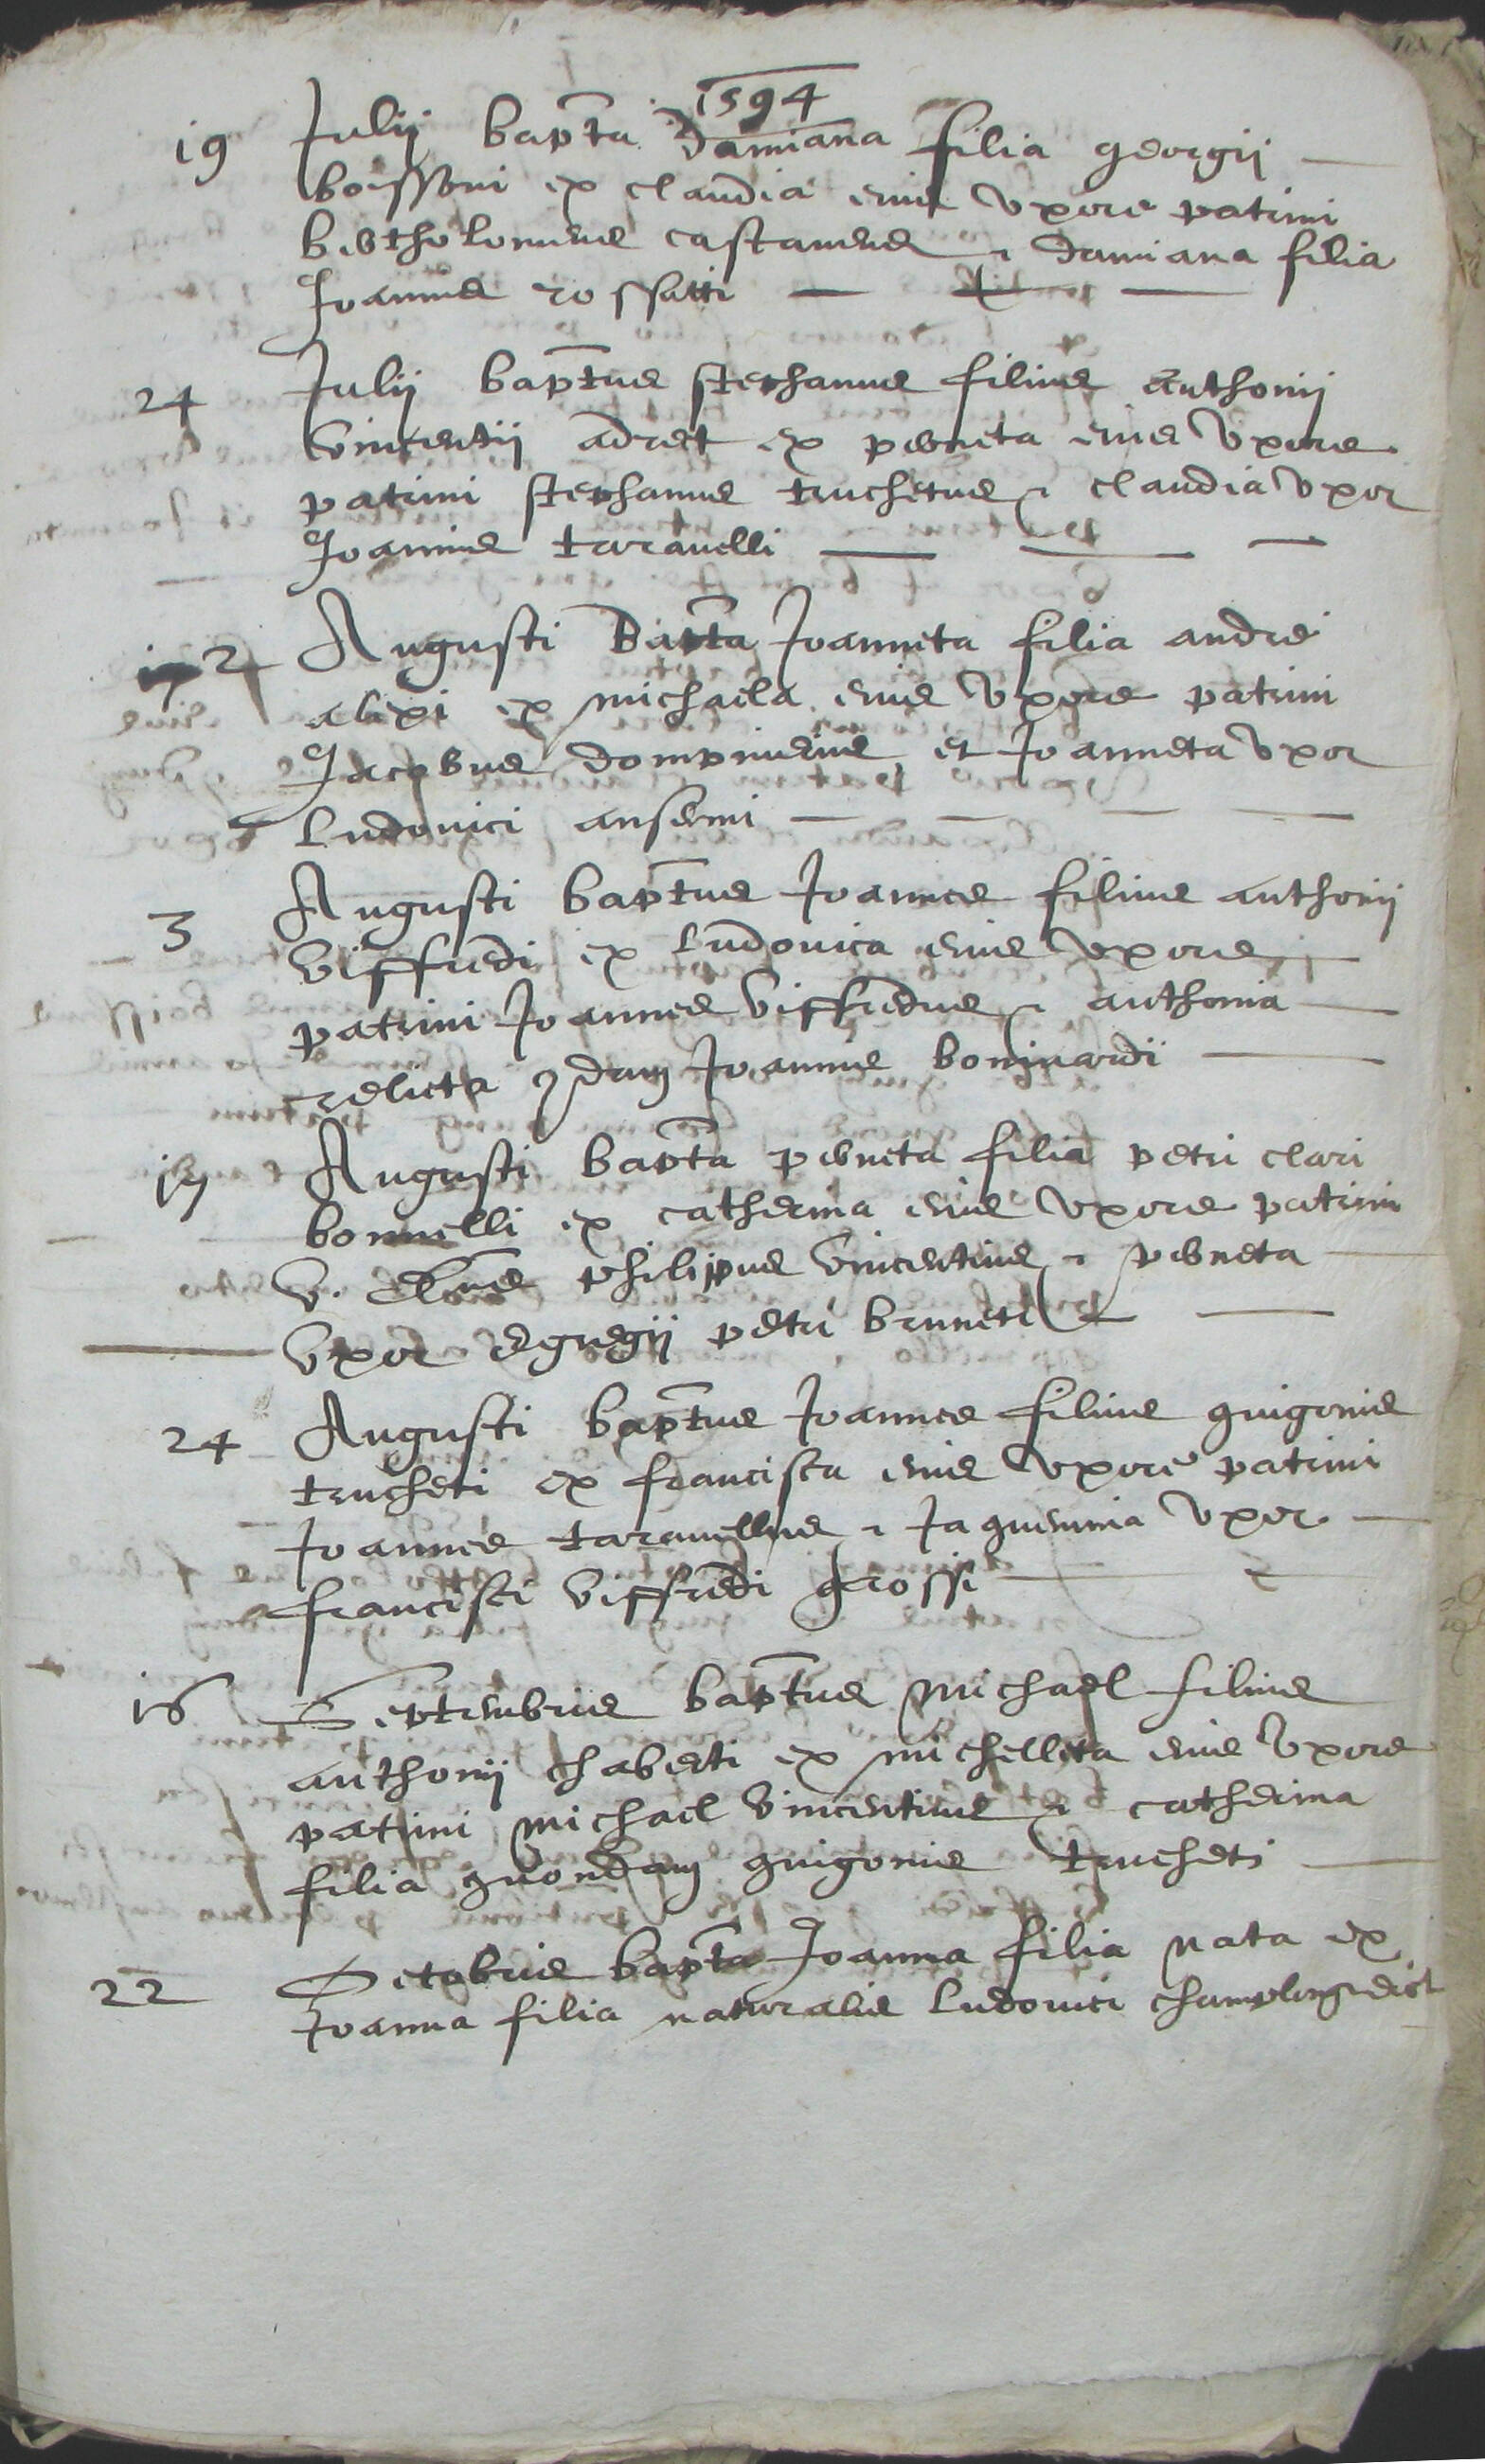 1594
19 Julij bapta Damiana filia georgij
boissoni ex claudia eius uxore patrini
bertholomeus castaneus & damiana filia
Joannis rossatti
24 Julij baptus stephanus filius anthonij
vincentij adret ex perneta eius uxore
patrini stephanus truchetus & claudia uxor
Joannis taravelli
2 Augusti bapta Joanneta filia andree
alexi ex michaela eius uxore patrini
Jacobus dompnerius et Joanneta uxor
ludovici anselmi
3 Augusti baptus Joannes filius anthonij
viffredi ex ludovica eius uxore
patrini Joannes viffredus & anthonia
relicta qdam Joannis boninardi
Augusti bapta perneta filia petri clari
bonnelli ex catherina eius uxore patrini
v. philippus vincentius & perneta
uxor egregij petri bruneti
24 Augusti baptus Joannes filius guigonis
trucheti ex francisca eius uxore patrini
Joannes taravellus & Jaquemia uxor
francisci viffredi grossi
16 Septembris baptus michael filius
anthonij chaberti ex michelleta eius uxore
patrini michael vincentius & catherina
filia quondam guigonis trucheti
22 Octobris bapta Joanna filia nata ex
Joanna filia naturalis ludovici champlong dict